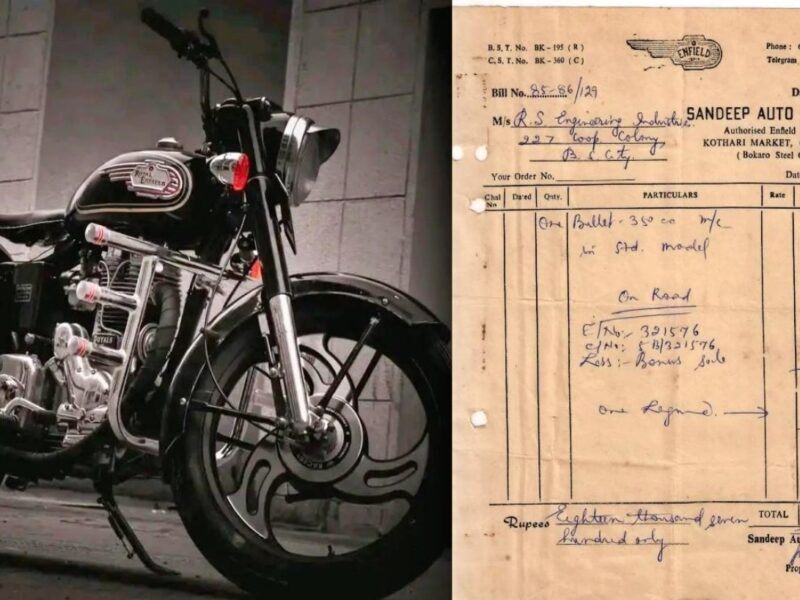 ROYAL
ENFIELD
B. S. T. No. BK - 195 ( R )
C. S. T. No. BK - 360 ( C )
ENFIELD
Phone : 6
Telegram
Bill No. 85-86/129
D
SANDEEP AUTO
M/s R.S. Engineering
Authorised Enfield
227 Coop. Colony,
KOTHARI MARKET,
B. S. City.
( Bokaro Steel C
Your Order No.
Dat
Chal No Dated Qnty. PARTICULARS Rate
One Bullet - 350 cc m/c
in Std. model
On Road
E/No:- 321576
C/No:- 5B/321576
Less :- Bonus
one →
TOTAL
Rupees Eighteen thousand seven
hundred only
Sandeep Au
Prop